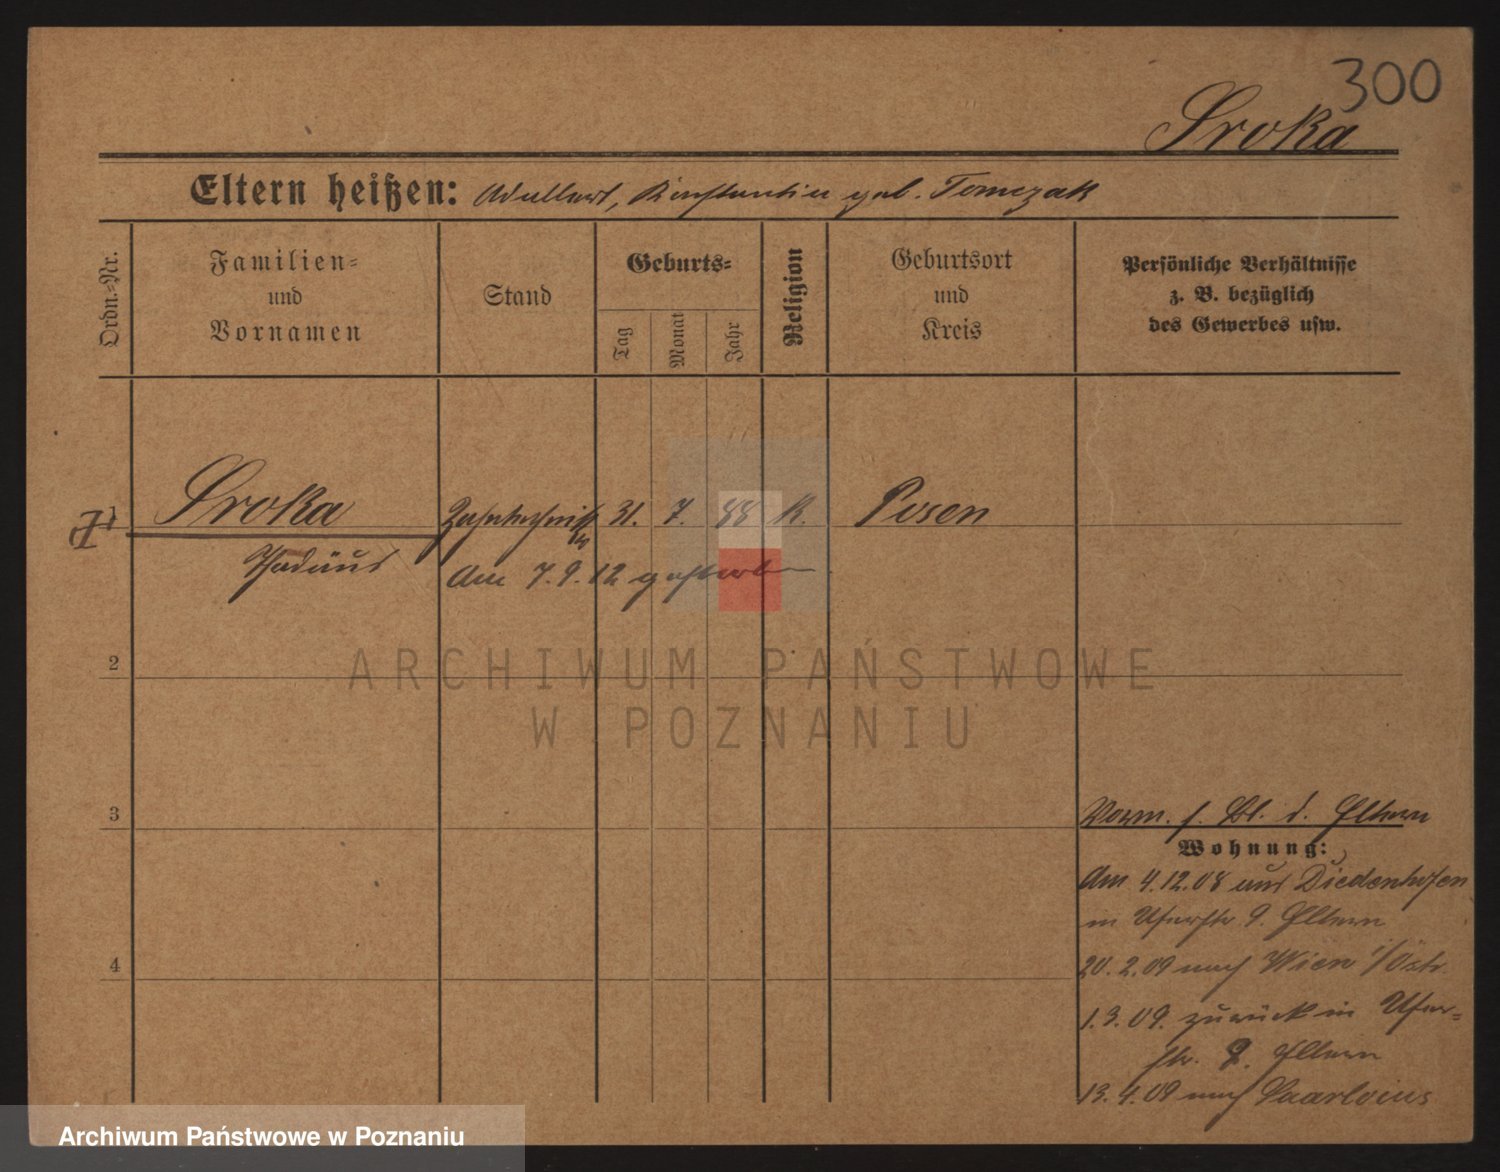 300
Sroka
Eltern heißen: Adalbert, Konstantin geb. Tomczak
Ordn.-Nr.
Familien-
und
Vornamen
Stand
Geburts-
Tag
Monat
Jahr
Religion
Geburtsort
und
Kreis
Persönliche Verhältnisse
z. B. bezüglich
des Gewerbes usw.
1 Sroka 31. 7. 88 K. Posen
Thadäus
Am 7.9.12 gestorben
ARCHIWUM PAŃSTWOWE
W POZNANIU
2
3
4
Vorm. s. Bl. d. Eltern
Wohnung:
Am 4.12.08 aus Diedenhofen
in Uferstr. 9. Eltern
20.2.09 nach Wien i/Östr
1.3.09. zurück in Ufer-
str. 9. Eltern
13.4.09 nach Saarlouis
Archiwum Państwowe w Poznaniu